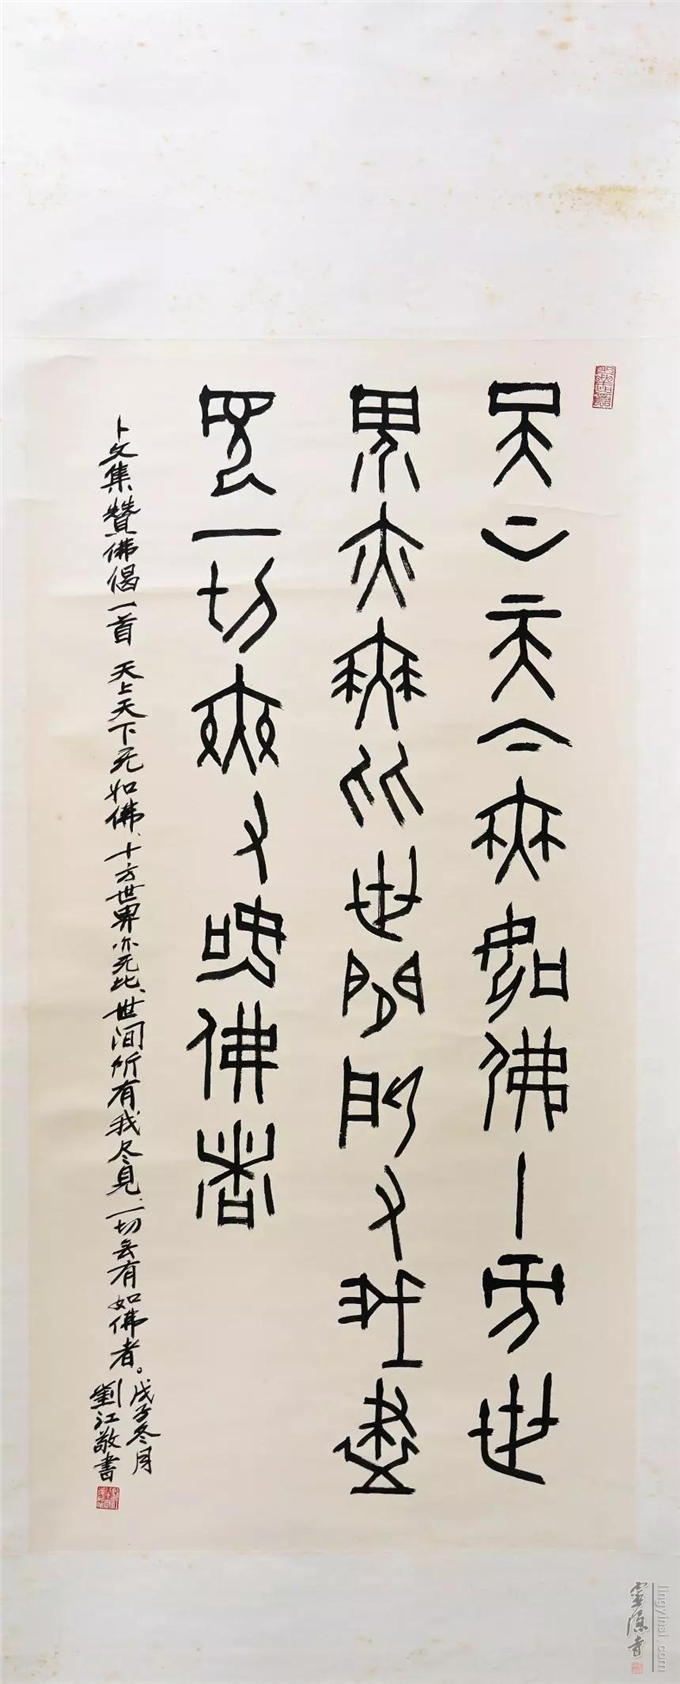 天上天下無如佛十方世
界亦無比世間所有我盡
見一切無有如佛者
卜文集贊佛偈一首 天上天下无如佛、十方世界亦无比、世间所有我尽見、一切无有如佛者。戊子冬月
劉江敬書
靈隱寺
lingyinsi.com